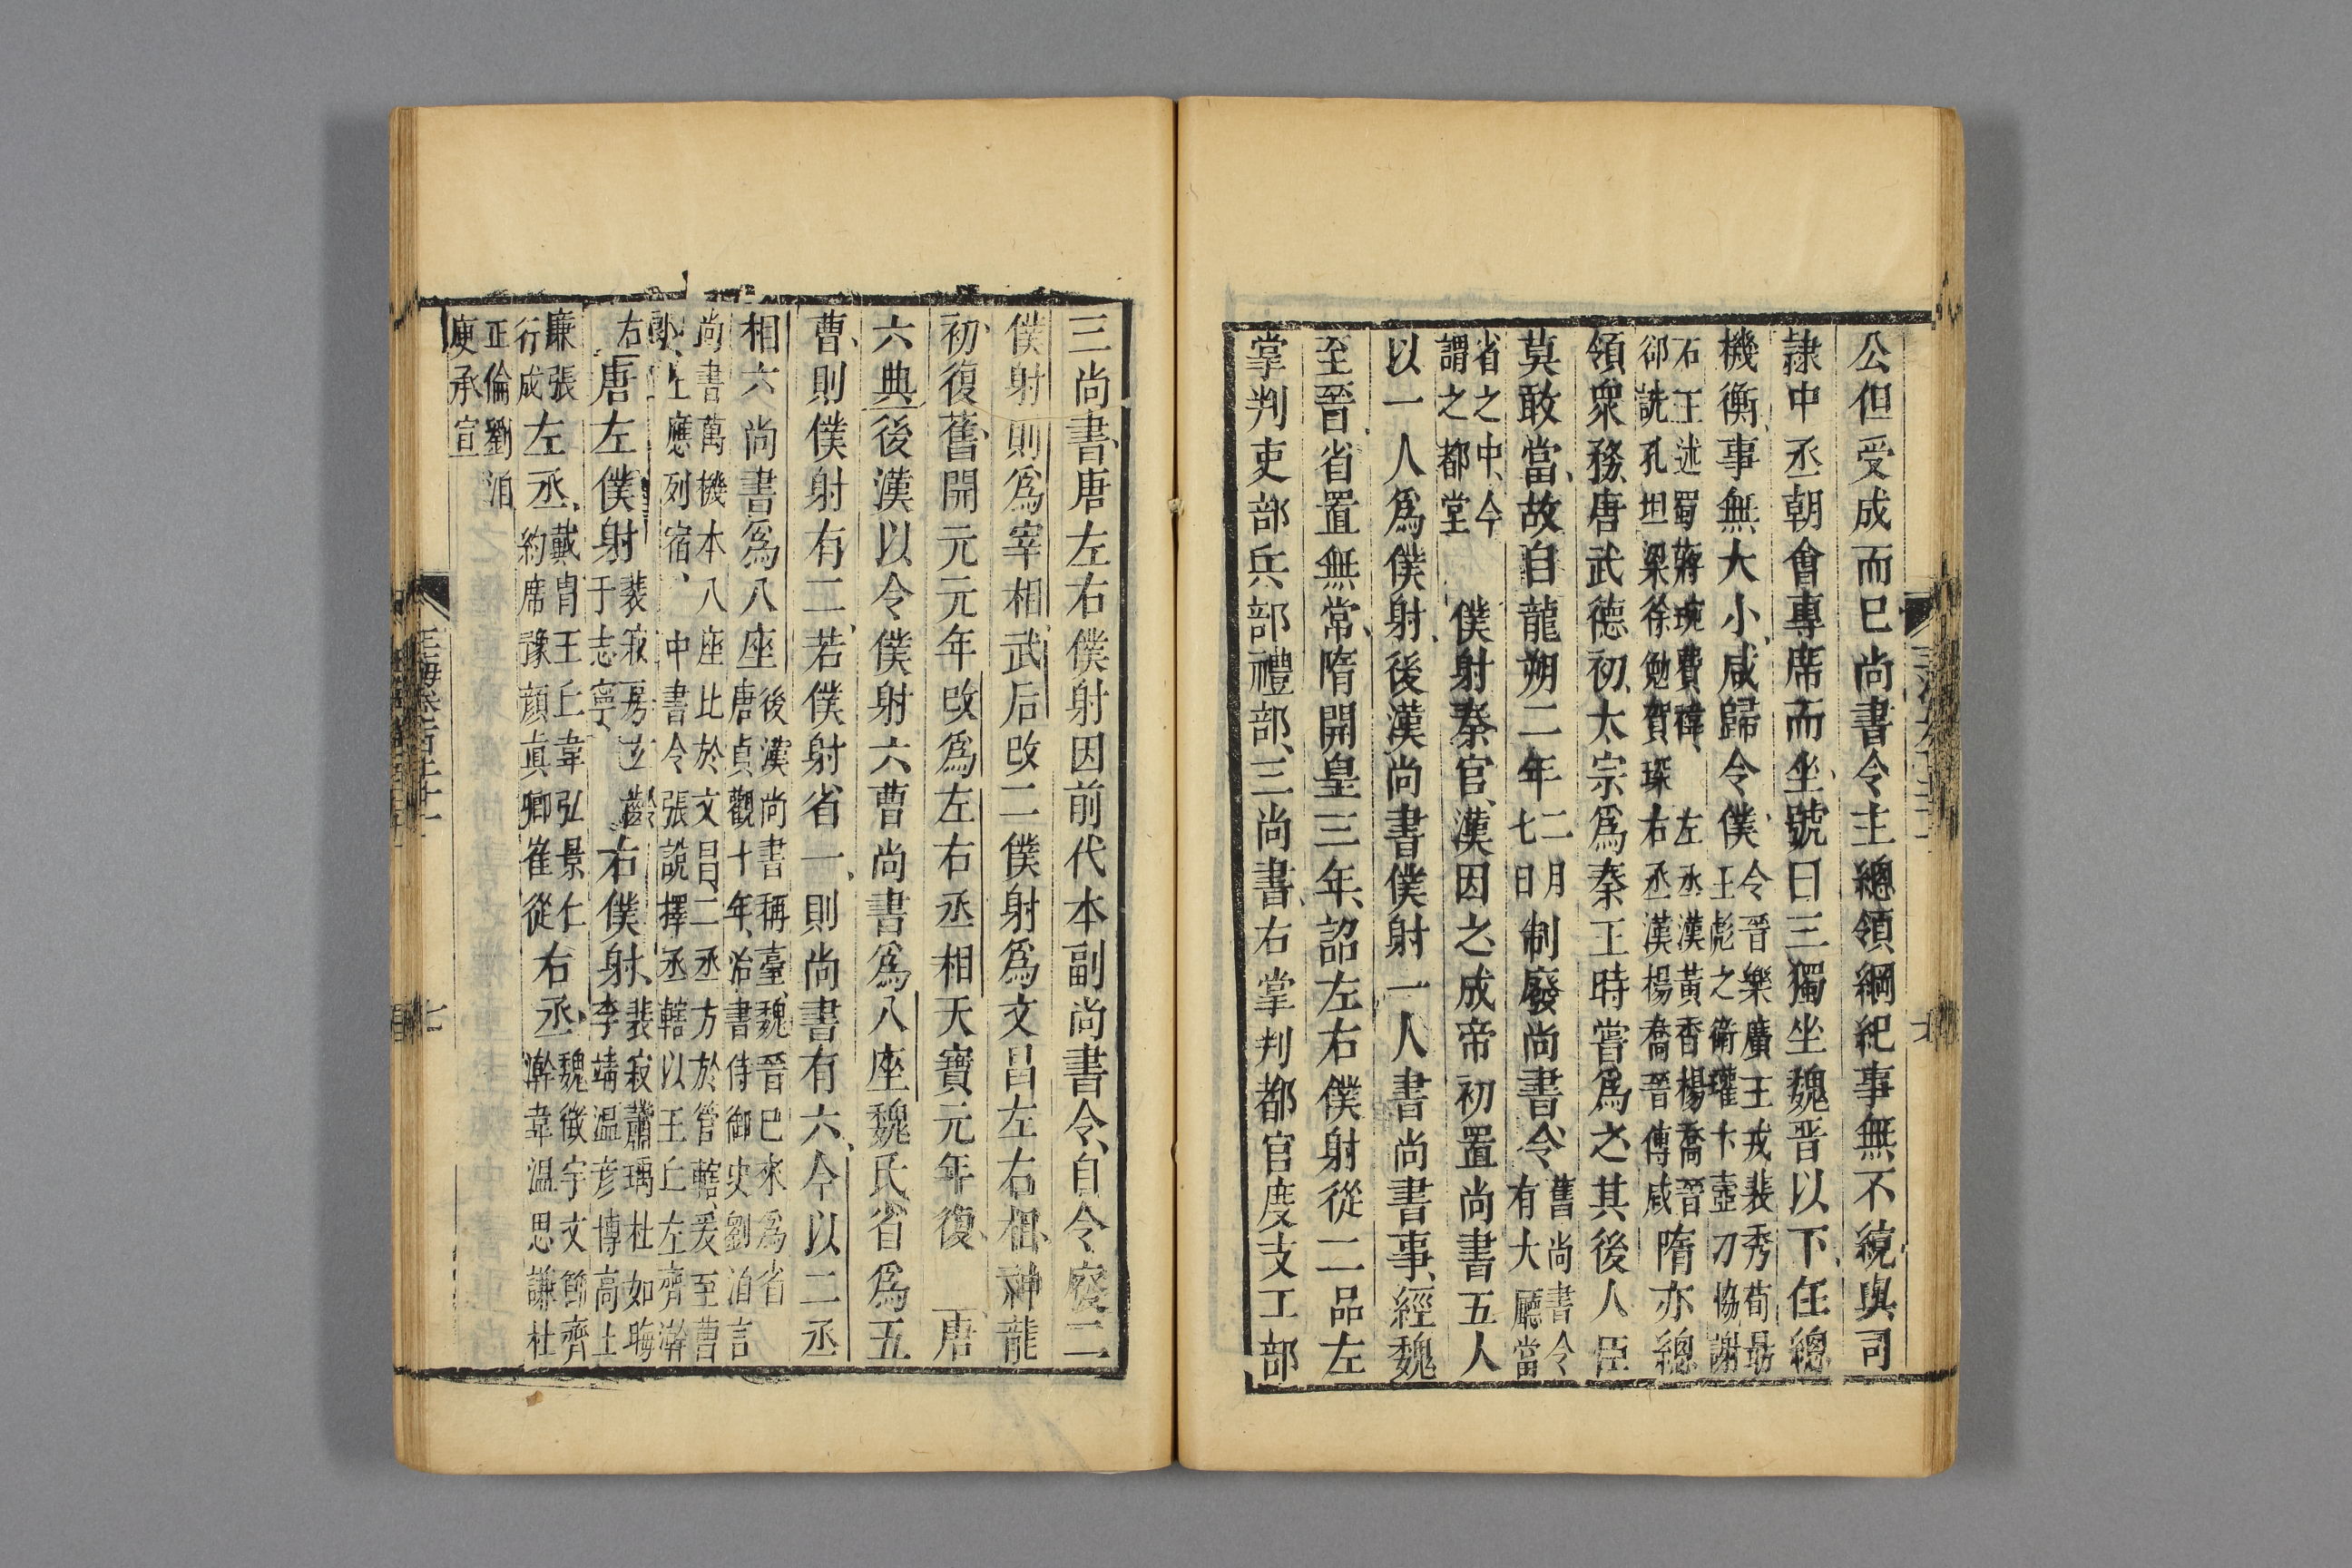 公但受成而已尚書令主總領綱紀事無不統與司
隷中丞朝會專席而坐號曰三獨坐魏晋以下任總
機衡事無大小咸歸令僕令晉樂廣王戎裴秀荀勗
王彪之衛瓘卞壼刁協謝
石王述蜀蔣琬費禕左丞漢黃香楊喬晉
郤詵孔坦梁徐勉賀琛右丞漢楊喬晉傅咸隋亦總
領衆務唐武德初太宗爲秦王時嘗爲之其後人臣
莫敢當故自龍朔二年二月
七日制廢尚書令舊尚書令
有大廳當
省之中今
謂之都堂　僕射秦官漢因之成帝初置尚書五人
以一人爲僕射後漢尚書僕射一人書尚書事經魏
至晉省置無常隋開皇三年詔左右僕射從二品左
掌判吏部兵部禮部三尚書右掌判都官度支工部
三尚書唐左右僕射因前代本副尚書令自令廢二
僕射則爲宰相武后改二僕射爲文昌左右相神龍
初復舊開元元年改爲左右丞相天寶元年復　唐
六典後漢以令僕射六曹尚書爲八座魏氏省爲五
曹則僕射有二若僕射省一則尚書有六今以二丞
相六尚書爲八座後漢尚書稱臺魏晉已來爲省
唐貞觀十年治書侍御史劉洎言
尚書萬機本八座比於文昌二丞方於管轄爰至曹
郎上應列宿　中書令張說擇丞轄以王丘左齊澣
右　唐左僕射裴寂房玄齡
于志寧右僕射裴寂蕭瑀杜如晦
李靖温彥博高士
廉張
行成左丞戴胄王丘韋弘景仁
約席豫顔眞卿崔從右丞魏徵宇文節齊
澣韋温思謙杜
正倫劉洎
庾承宣